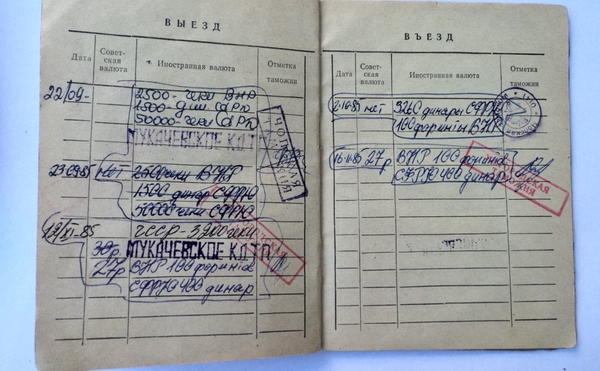 ВЫЕЗД
Дата
Совет-
ская
валюта
Иностранная валюта
Отметка
таможни
22/09-
2500- чеки ВНР
1500 - дин
50000 - чеки
МУКАЧЕВСКОЕ КДТП
23.09.85 нет 2500 чеки ВНР
1500 динар СФРЮ
50000 чеки СФРЮ
12/XI-85 ЧССР-3200 чеки
30р МУКАЧЕВСКОЕ КДТП
27р ВНР 100 форинтов
СФРЮ 400 динар
ВЪЕЗД
Дата
Совет-
ская
валюта
Иностранная валюта
Отметка
таможни
2-10-85 нет 3260 динары СФРЮ
100 форинтов ВНР
16-11-85 27р ВНР 100 форинтов
СФРЮ 400 динар